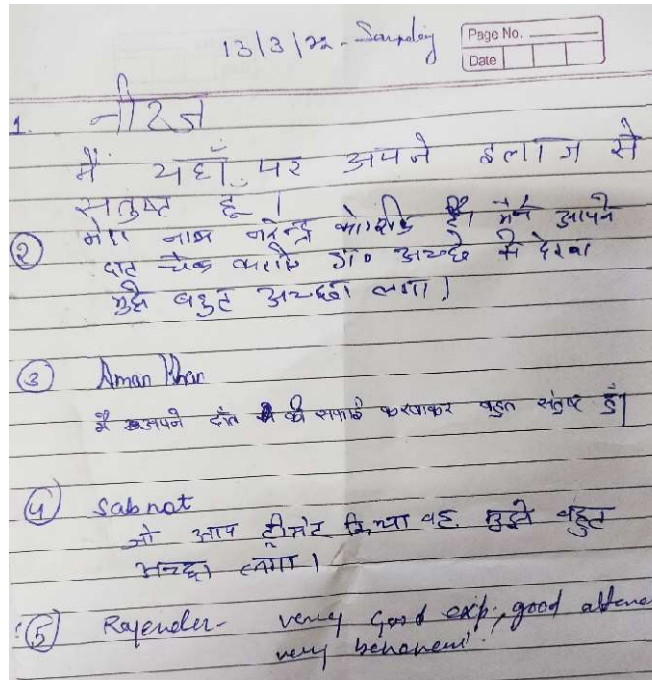 13/3/22 - Sunday
Page No.
Date
1. नीरज
मैं यहाँ पर अपने इलाज से
सतुष्ट हू ।
② मेरा नाम नरेन्द्र कौशिक है। मैने आपने
दात चेक कराऐ डा० अच्छे से देखा
मुझे बहुत अच्छा लगा।
③ Aman Khan
मैं अपने दाँत की सफाई करवाकर बहुत संतुष्ट हूँ।
④ Sabnat
जो आप ट्रीमेंट किया वह मुझे बहुत
अच्छा लगा।
⑤ Rajender- very good exp., good
very